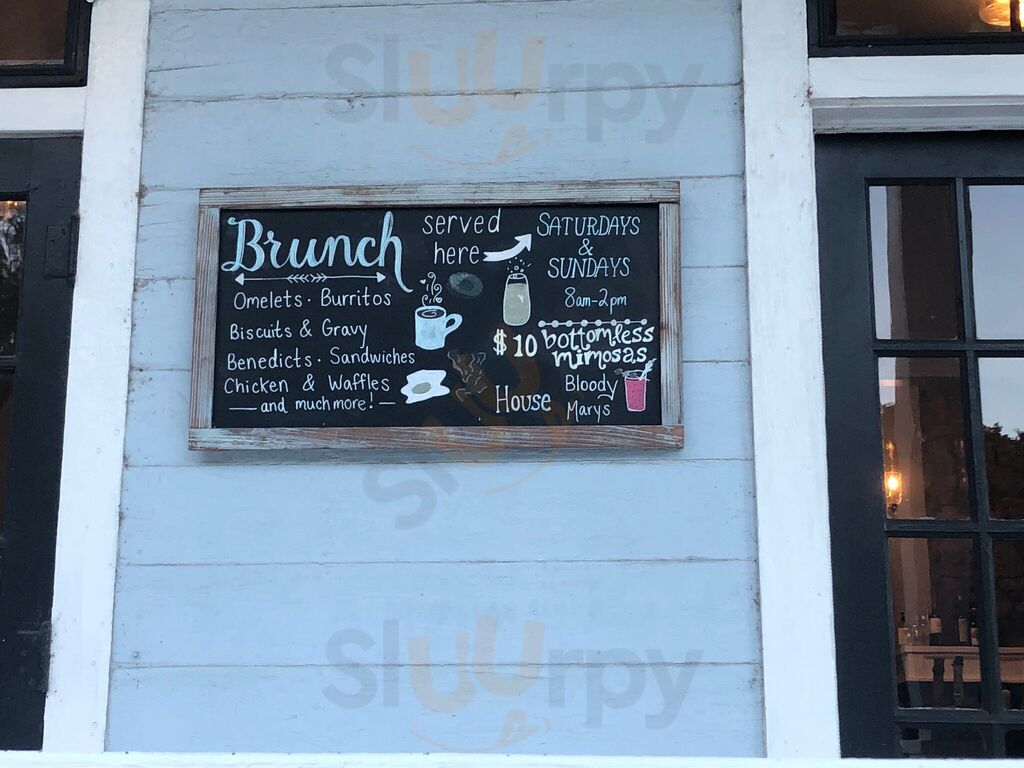 Sluurpy
Brunch
Omelets · Burritos
Biscuits & Gravy
Benedicts · Sandwiches
Chicken & Waffles
— and much more! —
served
here
SATURDAYS
&
SUNDAYS
8am-2pm
$10 bottomless
mimosas
House Bloody
Marys
Sluurpy
Sluurpy